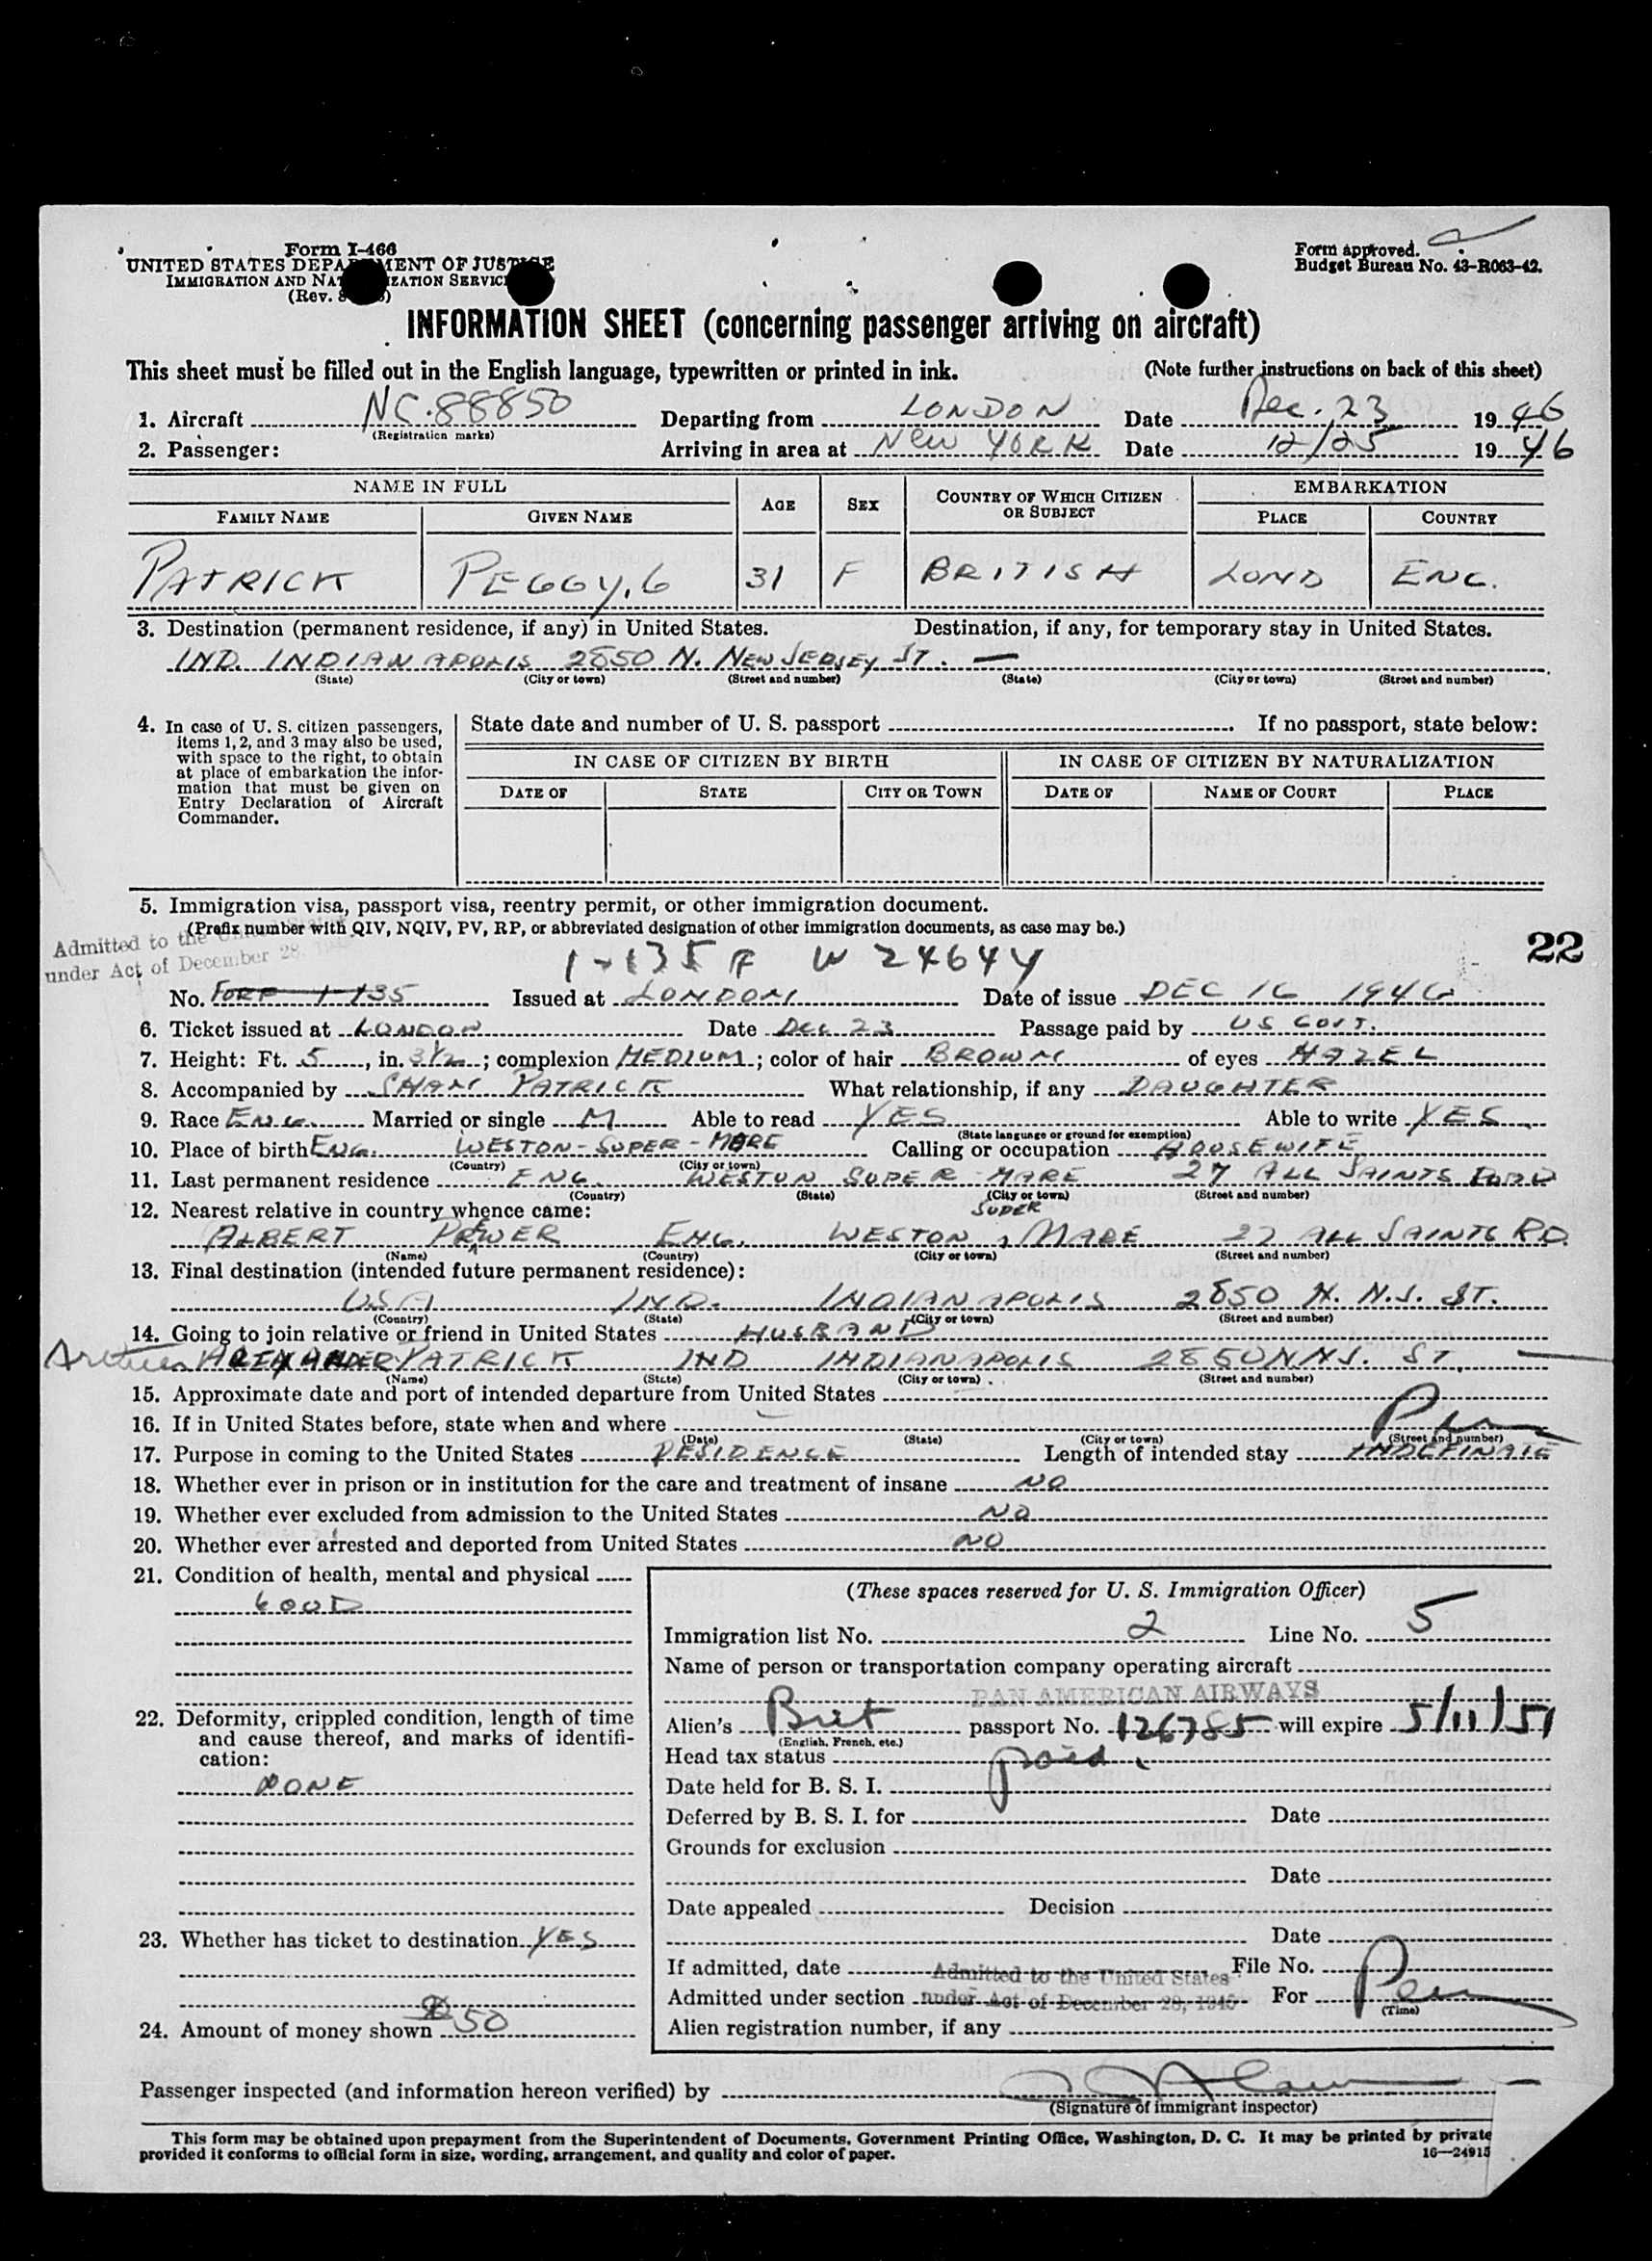 Form I-466
UNITED STATES DEPARTMENT OF JUSTICE
IMMIGRATION AND NATURALIZATION SERVICE
(Rev.
Form approved.
Budget Bureau No. 43-R063-42.
INFORMATION SHEET (concerning passenger arriving on aircraft)
This sheet must be filled out in the English language, typewritten or printed in ink. (Note further instructions on back of this sheet)
1. Aircraft NC.88850 Departing from LONDON Date Dec. 23 1946
(Registration marks)
2. Passenger: Arriving in area at New YORK Date 12/25 1946
NAME IN FULL AGE SEX COUNTRY OF WHICH CITIZEN OR SUBJECT EMBARKATION
FAMILY NAME GIVEN NAME PLACE COUNTRY
PATRICK PEGGY.G 31 F BRITISH LOND ENG.
3. Destination (permanent residence, if any) in United States. Destination, if any, for temporary stay in United States.
IND. INDIANAPOLIS 2850 N. NEW JERSEY ST. —
(State) (City or town) (Street and number) (State) (City or town) (Street and number)
4. In case of U. S. citizen passengers, items 1, 2, and 3 may also be used, with space to the right, to obtain at place of embarkation the information that must be given on Entry Declaration of Aircraft Commander.
State date and number of U. S. passport If no passport, state below:
IN CASE OF CITIZEN BY BIRTH IN CASE OF CITIZEN BY NATURALIZATION
DATE OF STATE CITY OR TOWN DATE OF NAME OF COURT PLACE
5. Immigration visa, passport visa, reentry permit, or other immigration document.
(Prefix number with QIV, NQIV, PV, RP, or abbreviated designation of other immigration documents, as case may be.)
Admitted to the United States
under Act of December 28,
22
I-135 W 24644
No. I-135 Issued at LONDON Date of issue DEC 16 1946
6. Ticket issued at LONDON Date DEC 23 Passage paid by US GOVT.
7. Height: Ft. 5, in. 3½; complexion MEDIUM; color of hair BROWN of eyes HAZEL
8. Accompanied by SHAN PATRICK What relationship, if any DAUGHTER
9. Race ENG. Married or single M Able to read YES Able to write YES
(State language or ground for exemption)
10. Place of birth ENG. WESTON-SUPER-MARE Calling or occupation HOUSEWIFE
(Country) (City or town)
11. Last permanent residence ENG. WESTON SUPER MARE 27 ALL SAINTS ROAD
(Country) (State) (City or town) (Street and number)
12. Nearest relative in country whence came:
SUPER
ALBERT ENG. WESTON, MARE 27 ALL SAINTS RD.
(Name) (Country) (City or town) (Street and number)
13. Final destination (intended future permanent residence):
USA IND. INDIANAPOLIS 2850 N. N.J. ST.
(Country) (State) (City or town) (Street and number)
14. Going to join relative or friend in United States HUSBAND
Arthur ALEXANDER PATRICK IND INDIANAPOLIS 2850 N NJ. ST.
(Name) (State) (City or town) (Street and number)
15. Approximate date and port of intended departure from United States
16. If in United States before, state when and where
(Date) (State) (City or town) (Street and number)
17. Purpose in coming to the United States RESIDENCE Length of intended stay INDEFINATE
18. Whether ever in prison or in institution for the care and treatment of insane NO
19. Whether ever excluded from admission to the United States NO
20. Whether ever arrested and deported from United States NO
21. Condition of health, mental and physical
GOOD
22. Deformity, crippled condition, length of time and cause thereof, and marks of identification:
NONE
23. Whether has ticket to destination YES
24. Amount of money shown $50
(These spaces reserved for U. S. Immigration Officer)
Immigration list No. 2 Line No. 5
Name of person or transportation company operating aircraft
PAN AMERICAN AIRWAYS
Alien's Brit passport No. 126785 will expire 5/11/51
(English, French, etc.)
Head tax status paid.
Date held for B. S. I.
Deferred by B. S. I. for Date
Grounds for exclusion
Date
Date appealed Decision
Date
If admitted, date Admitted to the United States File No.
Admitted under section under Act of December 28, 1945 For
(Time)
Alien registration number, if any
Passenger inspected (and information hereon verified) by
(Signature of immigrant inspector)
This form may be obtained upon prepayment from the Superintendent of Documents, Government Printing Office, Washington, D. C. It may be printed by private
provided it conforms to official form in size, wording, arrangement, and quality and color of paper. 16—24915